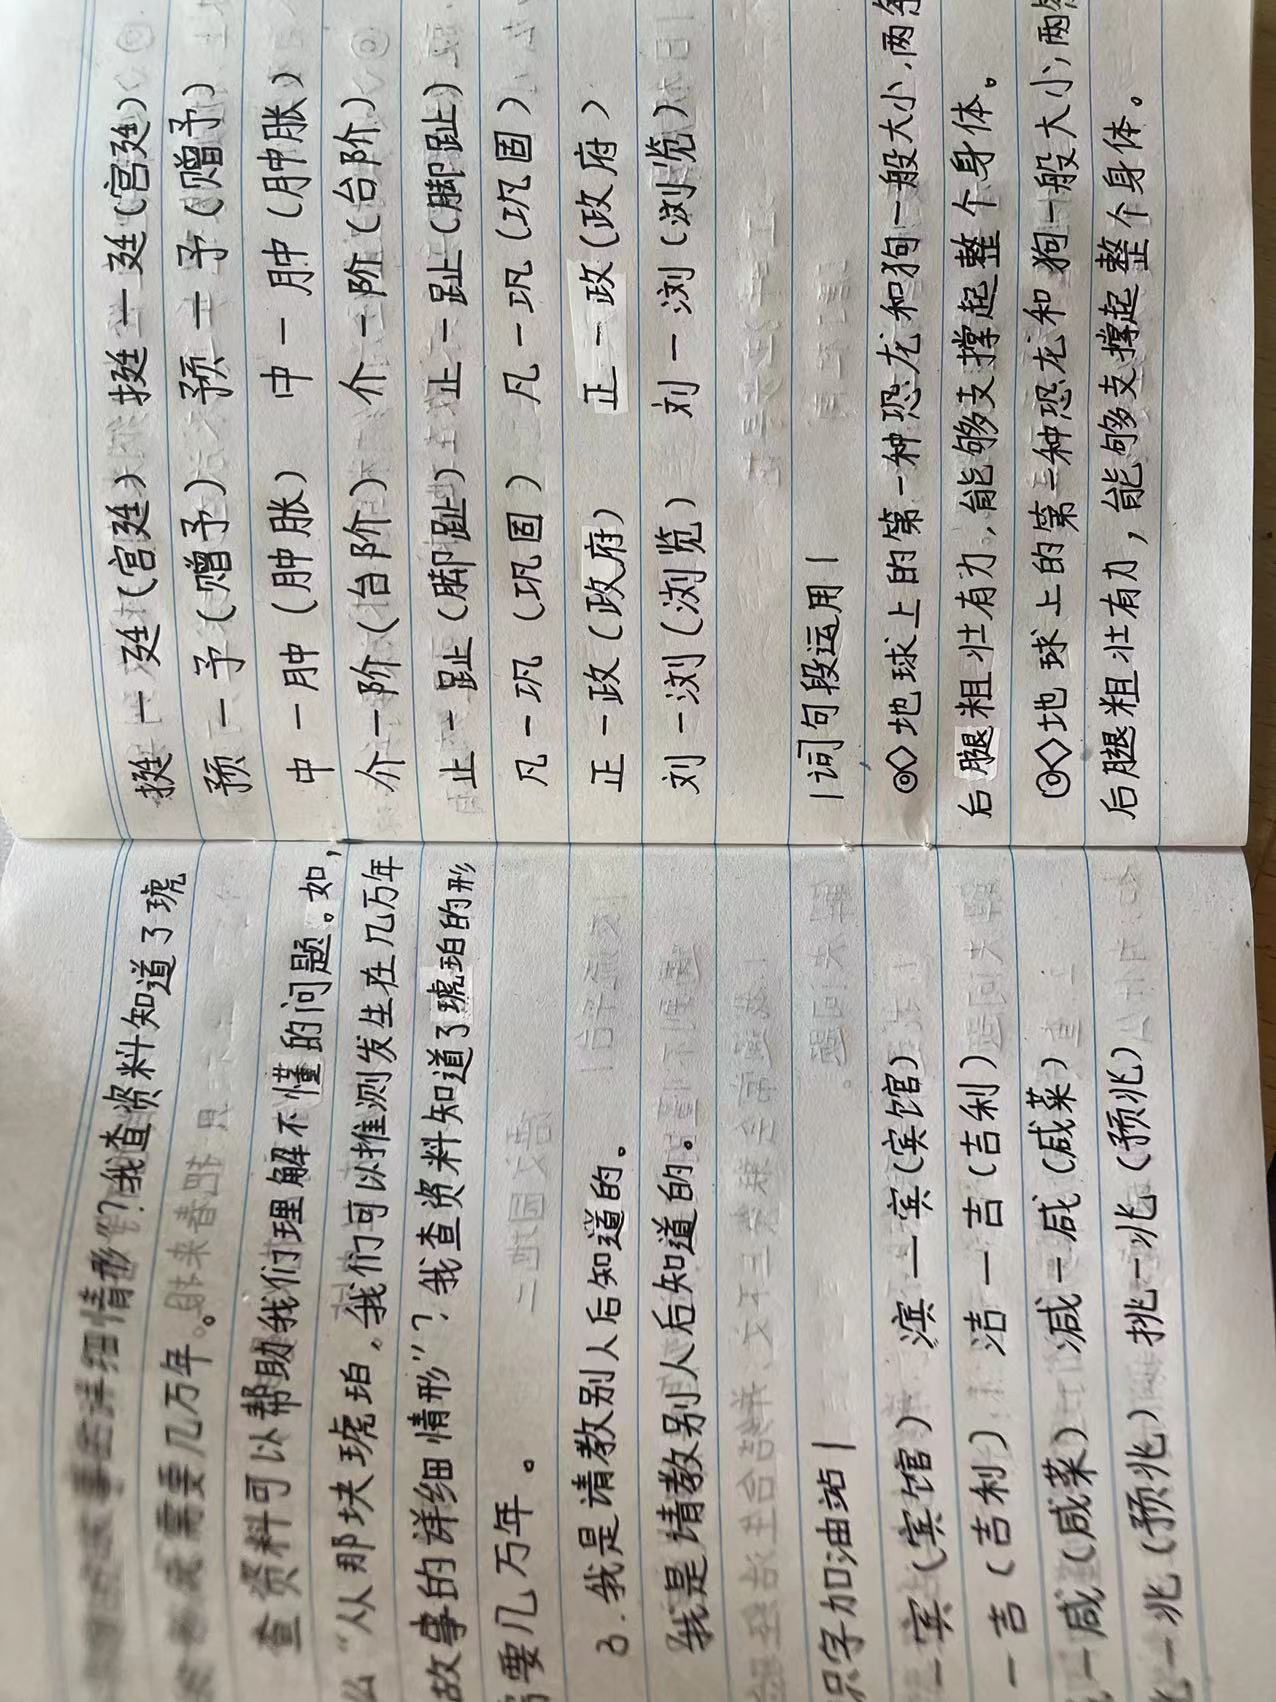 详细情形"?我查资料知道了琥
需要几万年。
查资料可以帮助我们理解不懂的问题。如,
么"从那块琥珀,我们可以推测发生在几万年
故事的详细情形"?我查资料知道了琥珀的形
需要几万年。
3.我是请教别人后知道的。
我是请教别人后知道的。
识字加油站|
一宾(宾馆) 滨一宾(宾馆)
一吉(吉利) 洁一吉(吉利)
一咸(咸菜) 减一咸(咸菜)
一兆(预兆) 挑一兆(预兆)
挺一廷(宫廷) 挺一廷(宫廷)
预一予(赠予) 预一予(赠予)
中一肿(肿胀) 中一肿(肿胀)
介一阶(台阶) 介一阶(台阶)
止一趾(脚趾) 止一趾(脚趾)
凡一巩(巩固) 凡一巩(巩固)
正一政(政府) 正一政(政府)
刘一浏(浏览) 刘一浏(浏览)
|词句段运用|
◎◇地球上的第一种恐龙和狗一般大小,两条
后腿粗壮有力,能够支撑起整个身体。
◎◇地球上的第一种恐龙和狗一般大小,两条
后腿粗壮有力,能够支撑起整个身体。